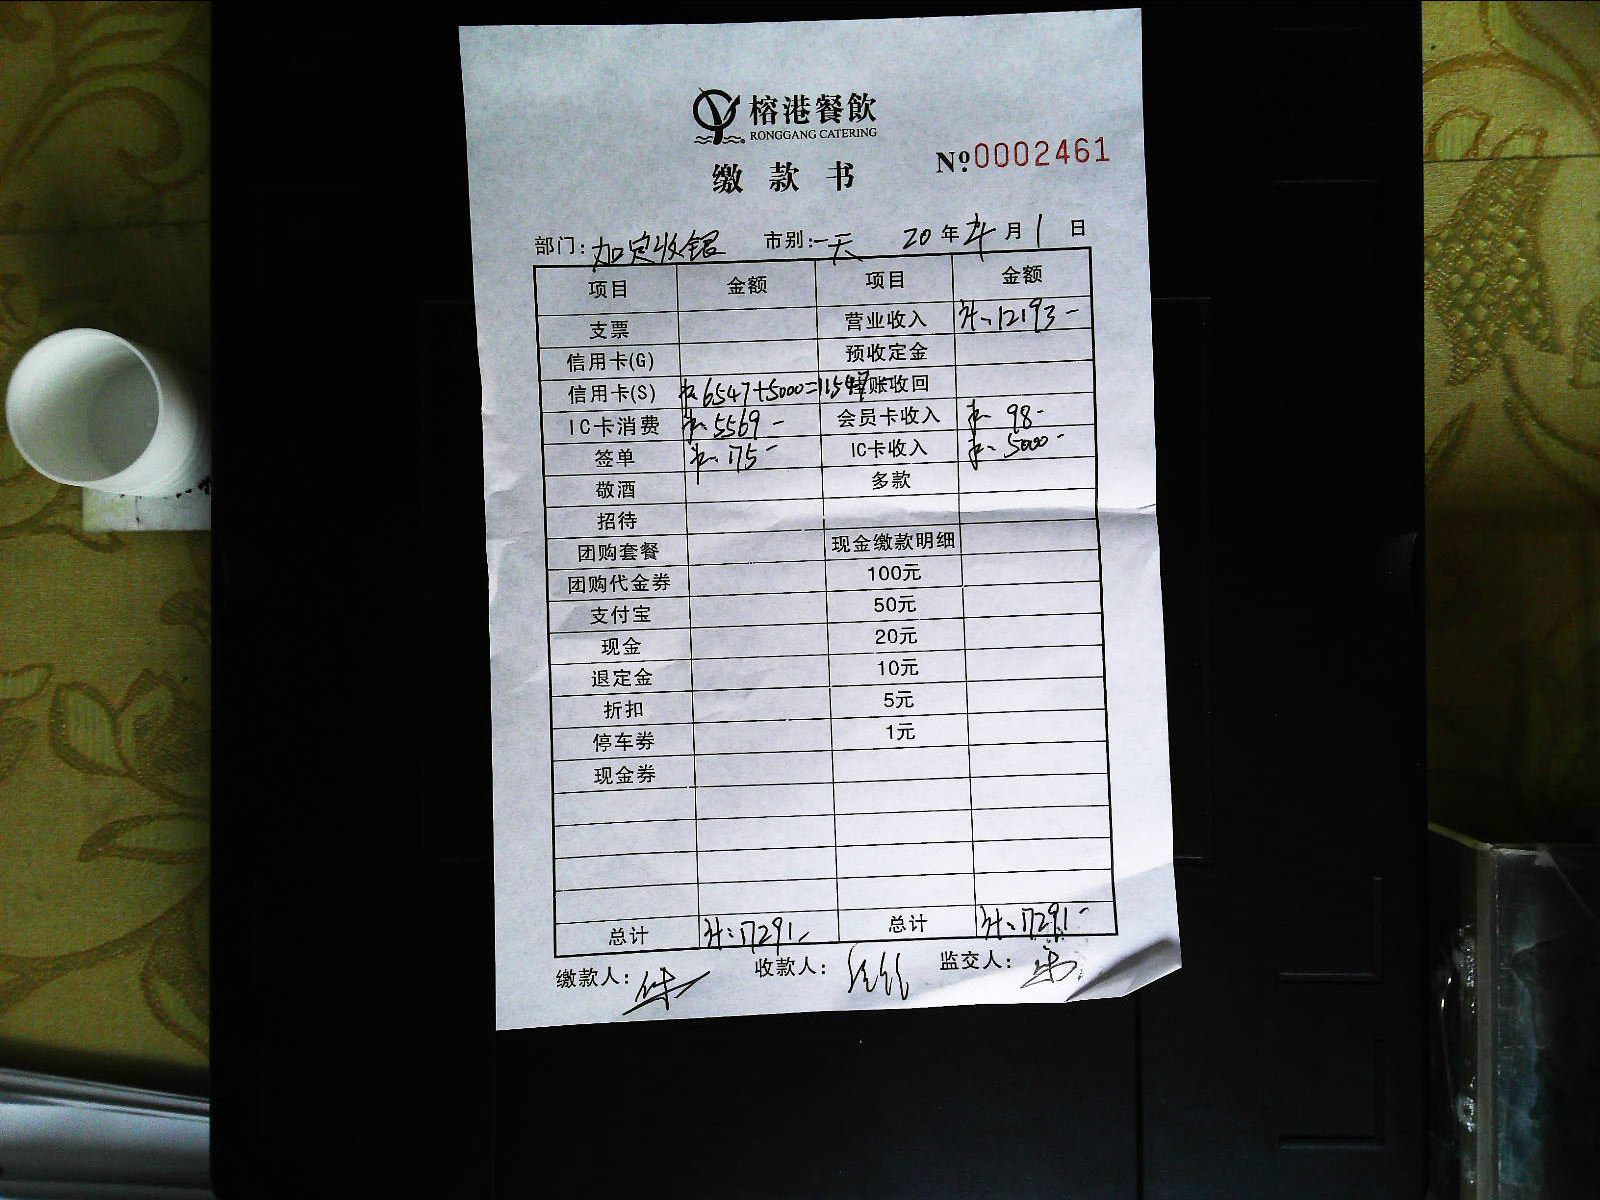 榕港餐飲
RONGGANG CATERING
缴款书
Nº.0002461
部门: 加定收银 市别: 一天 20 年 4 月 1 日
项目 金额 项目 金额
支票 营业收入 12193-
信用卡(G) 预收定金
信用卡(S) 6547+5000=11547 账收回
IC卡消费 5569- 会员卡收入 98-
签单 175- IC卡收入 5000-
敬酒 多款
招待
团购套餐 现金缴款明细
团购代金券 100元
支付宝 50元
现金 20元
退定金 10元
折扣 5元
停车券 1元
现金券
总计 17291- 总计 17291-
缴款人: 收款人: 监交人: